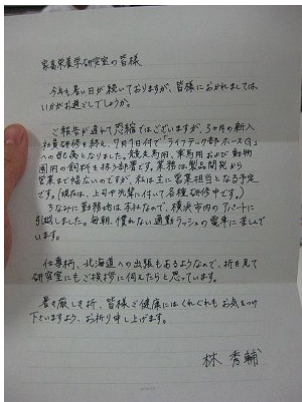 家畜栄養学研究室の皆様
今年も暑い日が続いておりますが、皆様におかれましては
いかがお過ごしでしょうか。
ご報告が遅れて恐縮ではございますが、3ヶ月の新入
社員研修を終え、7月1日付で「ライフテック部ホースG」
への配属となりました。競走馬用、乗馬用および動物
園用の飼料を扱う部署です。業務は製品開発から
営業まで幅広いのですが、私は主に営業担当となる予定
です。(現在は、上司や先輩に付いて各種研修中です。)
ちなみに勤務地は本社なので、横浜市内のアパートに
引越しました。毎朝、慣れない通勤ラッシュの電車に苦しんで
います。
仕事柄、北海道への出張もあるようなので、折を見て
研究室にもご挨拶に伺えたらと思っています。
暑さ厳しき折、皆様ご健康にはくれぐれもお気をつけ
下さいますよう、お祈り申し上げます。
林 秀輔